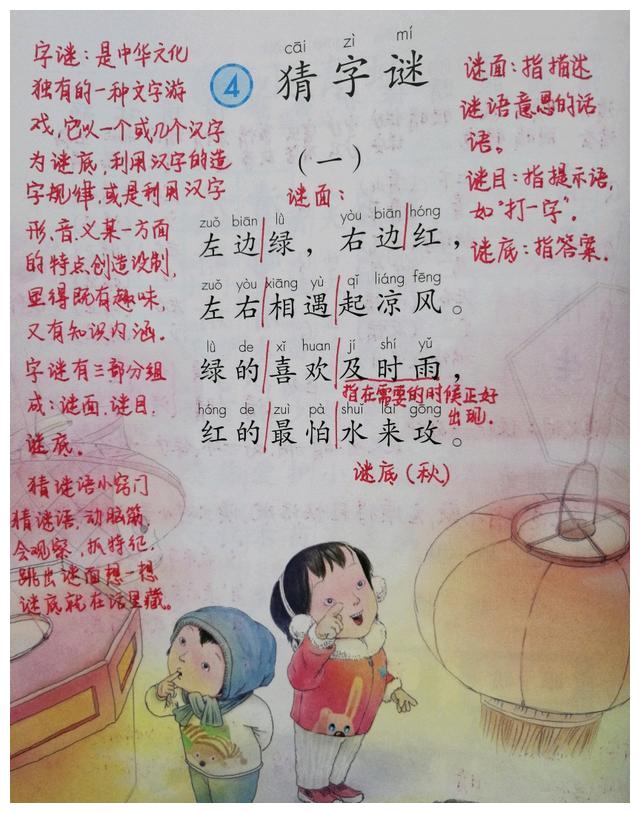 cāi zì mí
4 猜字谜
(一)
谜面:
zuǒ biān lǜ yòu biān hóng
左边绿，右边红，
zuǒ yòu xiāng yù qǐ liáng fēng
左右相遇起凉风。
lǜ de xǐ huan jí shí yǔ
绿的喜欢及时雨，
指在需要的时候正好
出现.
hóng de zuì pà shuǐ lái gōng
红的最怕水来攻。
谜底(秋)
字谜:是中华文化
独有的一种文字游
戏,它以一个或几个汉字
为谜底,利用汉字的造
字规律,或是利用汉字
形、音、义某一方面
的特点创造设制,
显得既有趣味,
又有知识内涵.
字谜有三部分组
成:谜面.谜目.
谜底.
猜谜语小窍门
猜谜语,动脑筋,
会观察,抓特征.
跳出谜面想一想
谜底就在话里藏。
谜面:指描述
谜语意思的话
语。
谜目:指提示语,
如"打一字".
谜底:指答案.